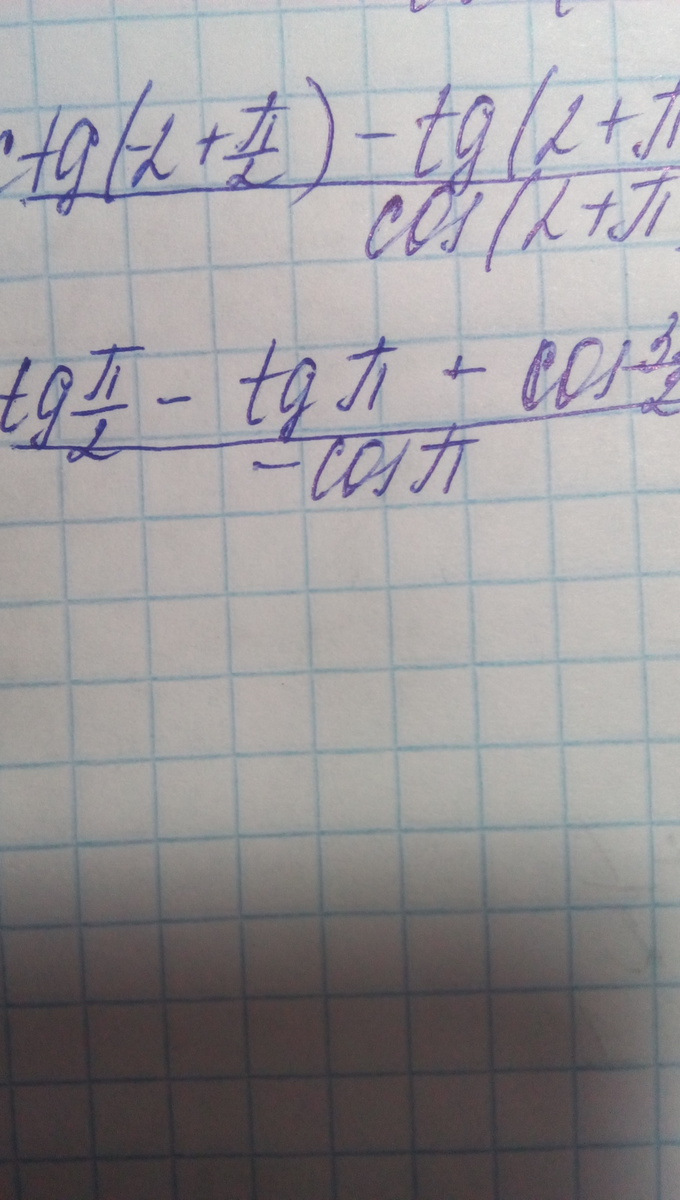 ctg(-2+π/2) - tg(2+π
cos(2+π
tg π/2 - tg π + cos 3/2
-cos π